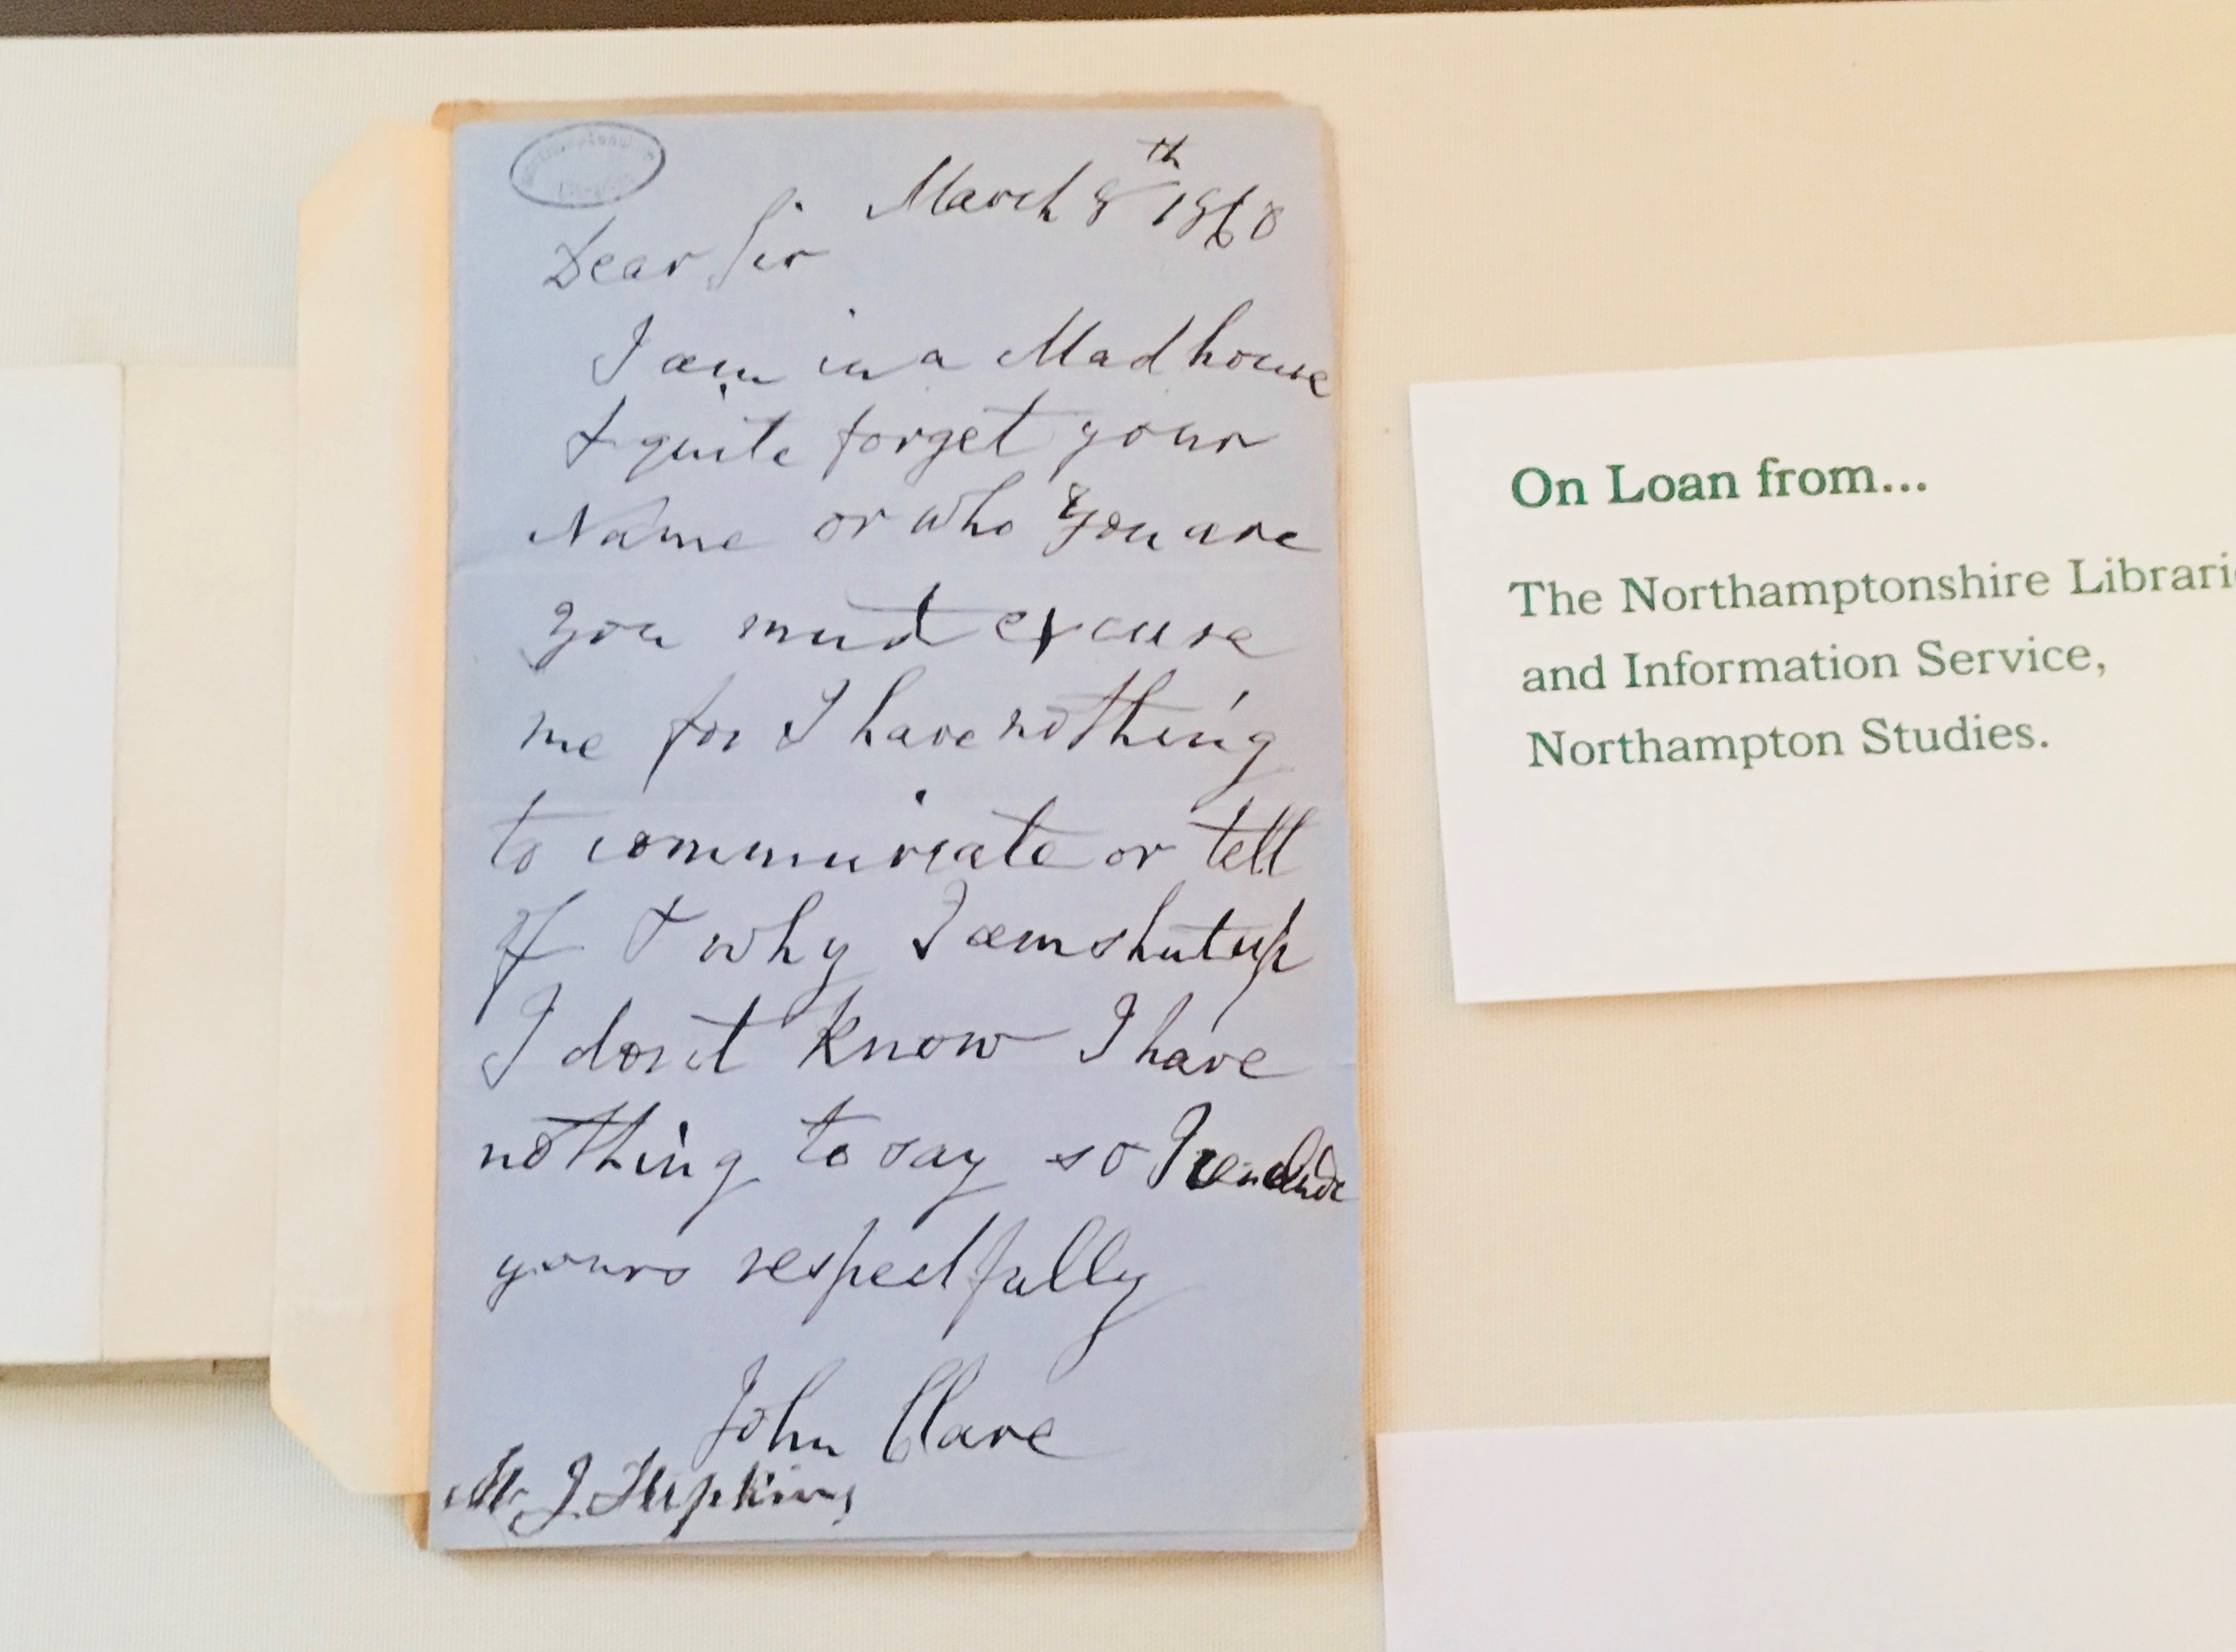 March 8th 1860
Dear Sir
I am in a Mad house
& quite forget your
Name or who you are
you must excuse
me for I have nothing
to communicate or tell
of & why I am shut up
I dont know I have
nothing to say so I conclude
yours respectfully
John Clare
Mr J. Hopkins
On Loan from...
The Northamptonshire Librari
and Information Service,
Northampton Studies.